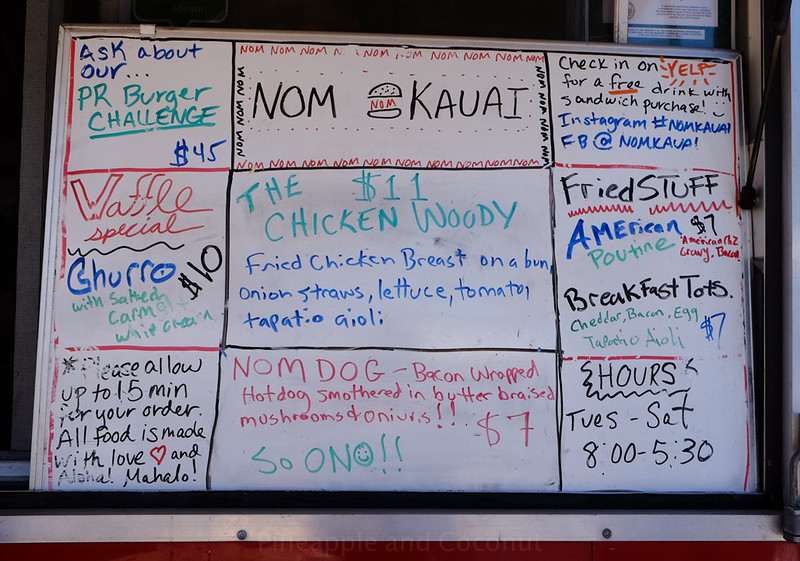 Ask about
our...
PR Burger
CHALLENGE
$45
NOM NOM NOM N NOM NOM NOM NOM NOM NOM
NOM NOM NOM
NOM KAUAI
NOM
NOM NOM NOM NOM
NOM NOM NOM NOM NOM NOM NOM NOM NOM NOM
Check in on YELP
for a free drink with
sandwich purchase!
Instagram #NOMKAUAI
FB @ NOMKAUAI
Waffle
special
Churro $10
with Salted
Carmel +
whip cream
THE $11
CHICKEN WOODY
Fried Chicken Breast on a bun,
onion straws, lettuce, tomato,
tapatio aioli
Fried STUFF
AMERican $7
Poutine
American chz
Gravy, Bacon
BreakFast Tots.
Cheddar, Bacon, Egg
Tapatio Aioli $7
*Please allow
up to 15 min
for your order.
All food is made
with love ♡ and
Aloha! Mahalo!
NOM DOG - Bacon Wrapped
Hotdog smothered in butter braised
mushrooms & onions!! $7
So ONO☺!!
HOURS
Tues - Sat
8:00-5:30
Pineapple and Coconut